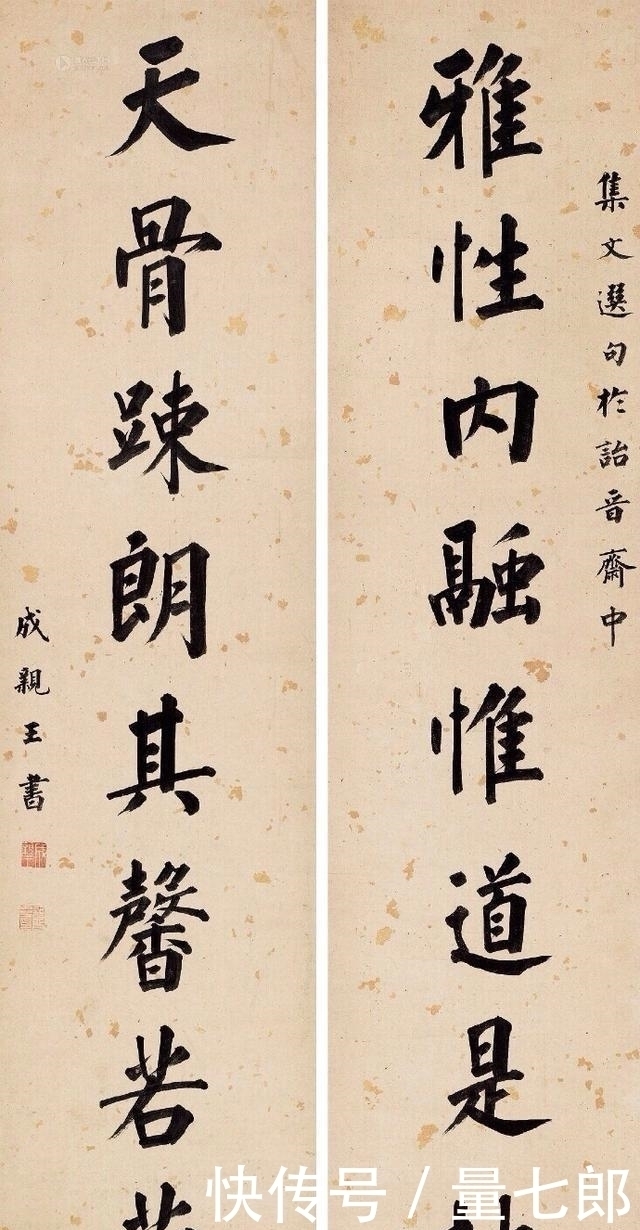 集文選句於詒晋齋中
雅性内融惟道是
天骨踈朗其馨若
成親王書
快传号 / 量七郎